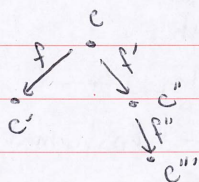 C
f f'
C' C''
f''
C'''